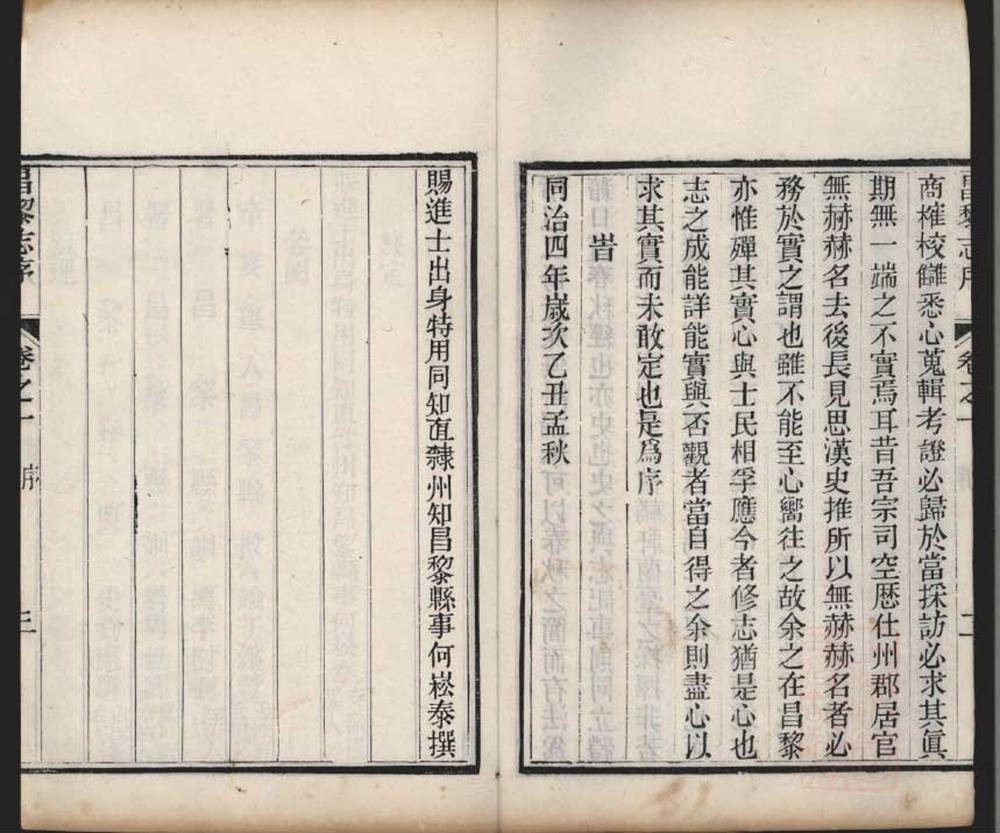 昌黎志序 卷之一 二
商榷校讎悉心蒐輯考證必歸於當採訪必求其眞
期無一端之不實焉耳昔吾宗司空歷仕州郡居官
無赫赫名去後長見思漢史推所以無赫赫名者必
務於實之謂也雖不能至心嚮往之故余之在昌黎
亦惟殫其實心與士民相孚應今者修志猶是心也
志之成能詳能實與否觀者當自得之余則盡心以
求其實而未敢定也是爲序
旹
同治四年歲次乙丑孟秋
賜進士出身特用同知直隸州知昌黎縣事何崧泰撰
昌黎志序 卷之一 序 三